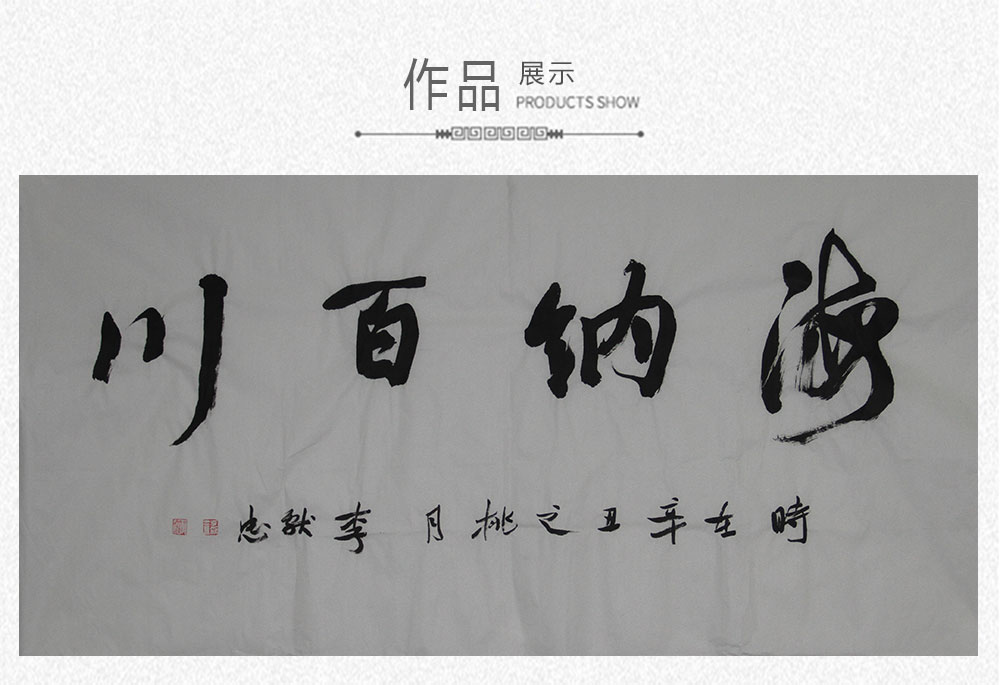 作品 展示
PRODUCTS SHOW
海納百川
時在辛丑之桃月 李猷忠